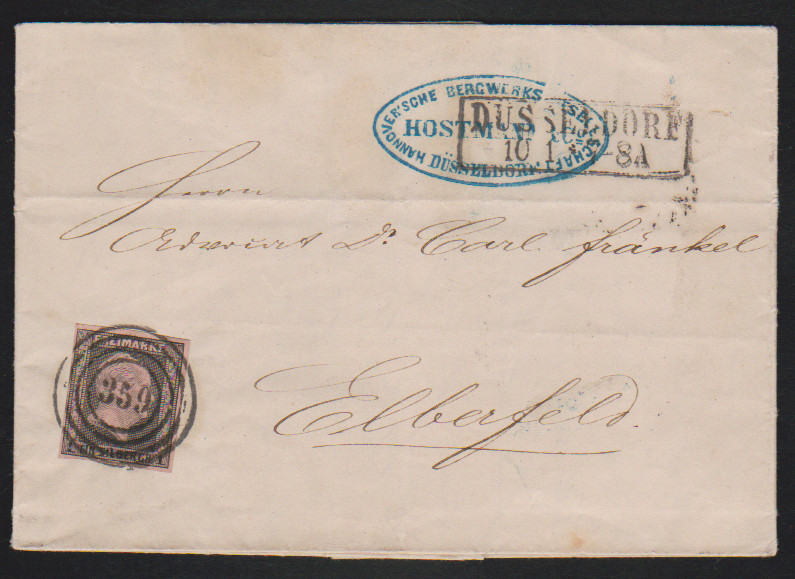 HANNOVER'SCHE BERGWERKS GESELLSCHAFT
HOSTMANN & Co
DÜSSELDORF.
DUSSELDORF
10 1 8A
Herrn
Advocat Dr. Carl Fränkel
Elberfeld.
FREIMARKE
359
1 SILBERGR. 1